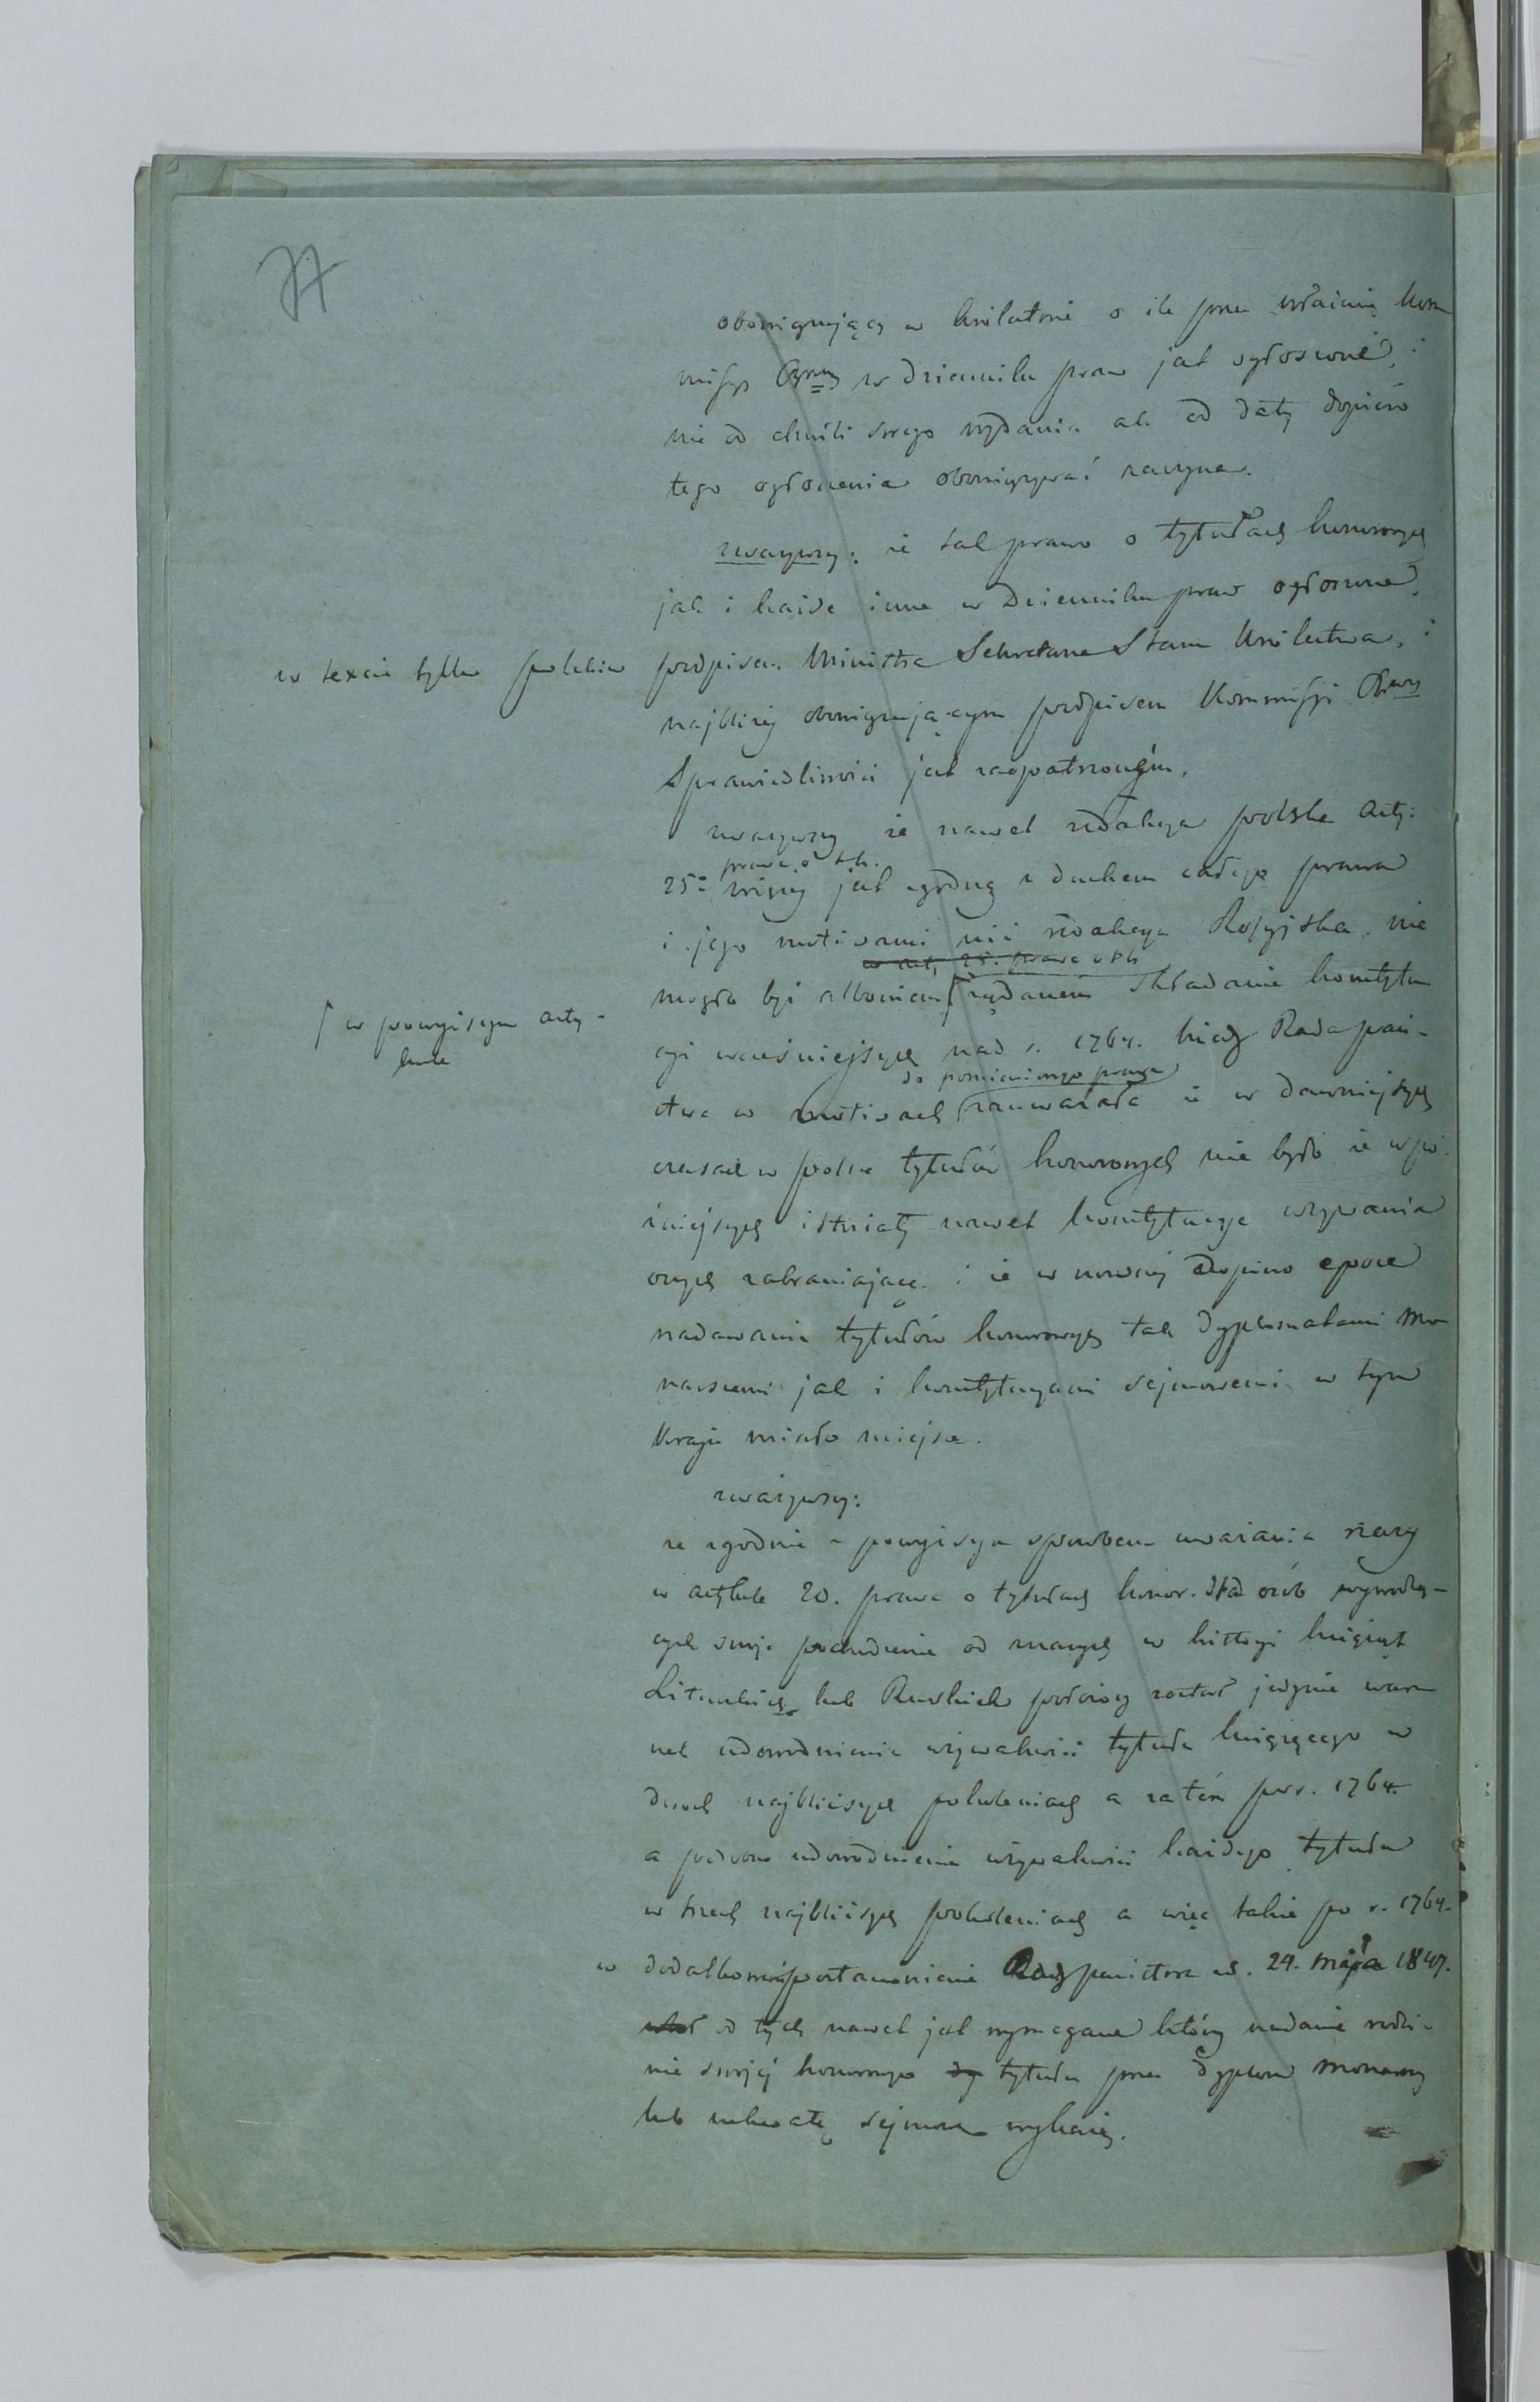 77
obowięzującą w Królestwie o ile przez właściwą Kom
missyą Rząwą w dzienniku praw jest ogłoszoné, i
nie od chwili swego wydania ale od daty dopiéro
tego ogłoszenia obowięzywać zaczyna.
zważywszy: że tak prawo o tytułach honorowych
jak i każde inne w Dzienniku praw ogłoszone,
w texcie tylko polskim podpisem Ministra Sekretarza Stanu Królestwa, i
najbliżéj obowięzującym podpisem Kommissyi Rzwéj
Sprawiedliwości jest zaopatrzoném.
zważywszy że nawet redakcya polska arty:
prawa o t. h.
25º więcéj jest zgodną z duchem całego prawa
i jego motivami niż redakcya Rossyjska, nie
w art. 25. prawa o t h
mogło być albowiem żądaném składanie konstytu
/ w powyższym arty-
kule
cyi wcześniejszych nad r. 1764. kiedy Rada pań-
do pomienionego prawa
stwa w motivach zauważała że w dawniejszych
czasach w Polsce tytułów honorowych nie było że w pó
źniejszych istniały nawet konstytucye używania
onych zabraniające i że w nowszéj dopiero epoce
nadawanie tytułów honorowych tak dyplomatami mo
narszemi jak i konstytucyami sejmowemi w tym
Kraju miało miejsce.
zważywszy:
że zgodnie z powyższym sposobem uważania rzeczy
w artykule 20. prawa o tytułach honor. dla osób wywodzą-
cych swoje pochodzenie od znanych w historyi książąt
Litewskich lub Ruskich położony został jedynie waru
nek udowodnienia używalności tytułu książęcego w
dwóch najbliższych pokoleniach a zatém po r. 1764.
a podobne udowodnienie używalności każdego tytułu
w trzech najbliższych pokoleniach a więc także po r. 1764.
w dodatkowém postanowieniu Rady państwa z d. 24. maja 1847.
od tych nawet jest wymagane którzy nadanie rodzi-
nie swojéj honorowego dy tytułu przez dyplom monarszy
lub uchwałę sejmową wykażą.